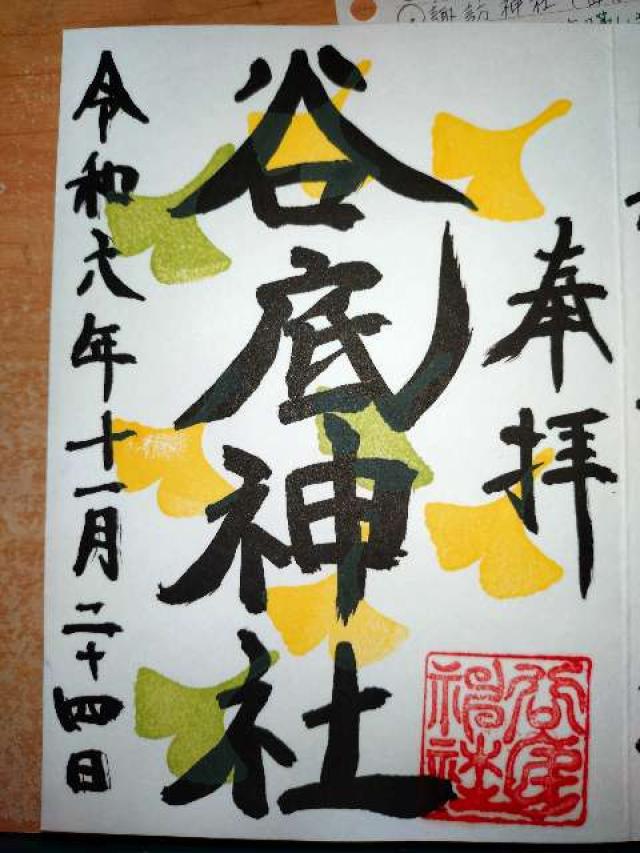 奉拝
谷底神社
令和六年十一月二十四日
諏訪神社